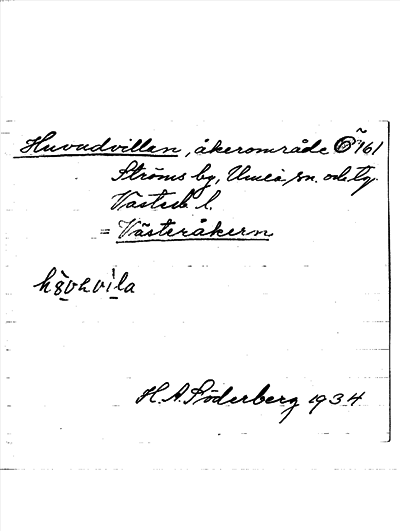 Huvudvillan, åkerområde 161
Ströms by, Umeå sn. och tg.
Västerb l.
= Västeråkern
H. A. Söderberg 1934